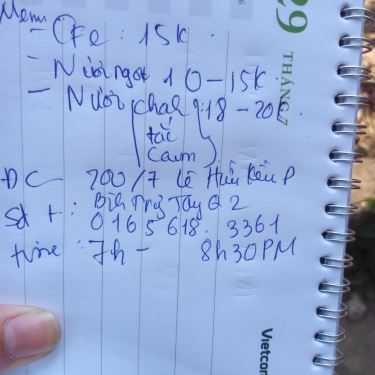 Menu
- CFe : 15K
- Nước ngọt 10-15K
- Nước chanh : 18-20K
tắc
Cam
ĐC 200/7 Lê
Bình Trưng Tây Q2
Sđt : 0165 618. 3361
time : 7h - 8h30PM
29
THÁNG 7
Vietcom